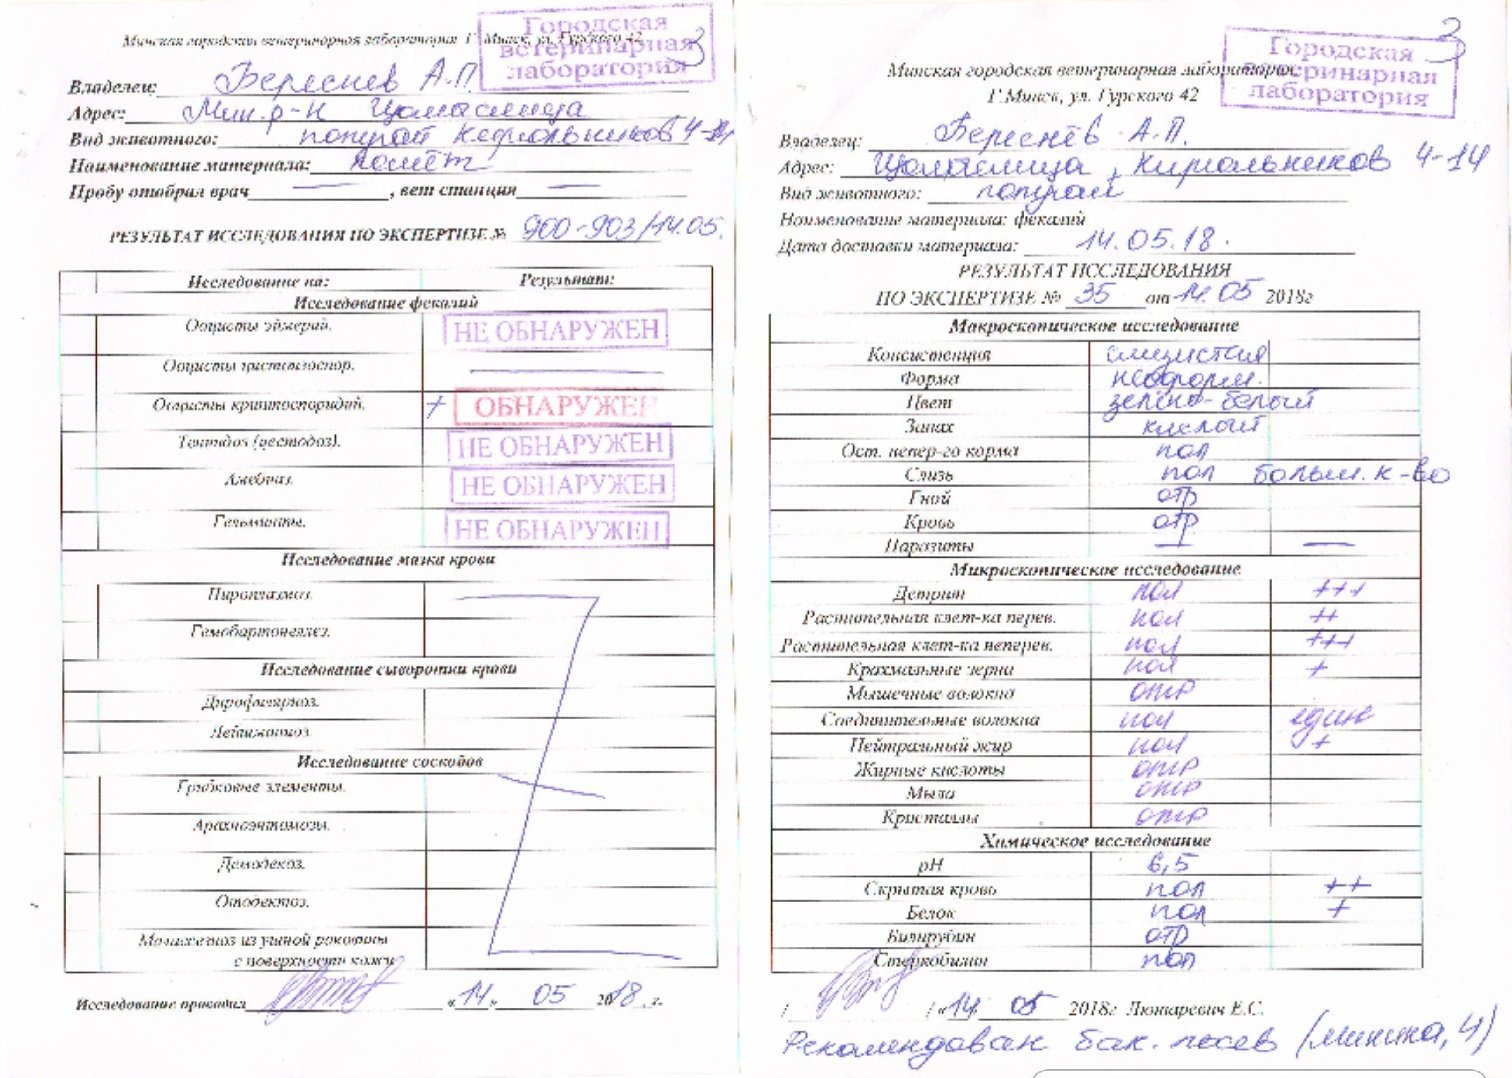 Городская
ветеринарная
лаборатория
3
Минская городская ветеринарная лаборатория Г. Минск, ул. Гурского 42
Владелец: Береснев А.П.
Адрес: Мин. р-н Щомыслица
Вид животного: попугай 4-14
Наименование материала: помёт
Пробу отобрал врач — , вет станция —
РЕЗУЛЬТАТ ИССЛЕДОВАНИЯ ПО ЭКСПЕРТИЗЕ № 900-903/14.05.
Исследование на: Результат:
Исследование фекалий
Ооцисты эймерий. НЕ ОБНАРУЖЕН
Ооцисты цистоизоспор. —
Ооцисты криптоспоридий. + ОБНАРУЖЕН
Тениидоз (цестодоз). НЕ ОБНАРУЖЕН
Амебиаз. НЕ ОБНАРУЖЕН
Гельминты. НЕ ОБНАРУЖЕН
Исследование мазка крови
Пироплазмоз.
Гемобартонеллез.
Исследование сыворотки крови
Дирофиляриоз.
Лейшманиоз
Исследование соскобов
Грибковые элементы.
Арахноэнтомозы.
Демодекоз.
Отодектоз.
Малассезиоз из ушной раковины
с поверхности кожи
Исследование проводил «14» 05 2018 г.
Городская
ветеринарная
лаборатория
3
Минская городская ветеринарная лаборатория
Г.Минск, ул. Гурского 42
Владелец: Береснёв А.П.
Адрес: Щомыслица, 4-14
Вид животного: попугай
Наименование материала: фекалий
Дата доставки материала: 14.05.18.
РЕЗУЛЬТАТ ИССЛЕДОВАНИЯ
ПО ЭКСПЕРТИЗЕ № 35 от 14.05 2018г
Макроскопическое исследование
Консистенция слизистая
Форма неоформ.
Цвет зелёно-белый
Запах кислый
Ост. непер-го корма пол
Слизь пол больш. к-во
Гной отр
Кровь отр
Паразиты — —
Микроскопическое исследование
Детрит пол +++
Растительная клет-ка перев. пол ++
Растительная клет-ка неперев. пол +++
Крахмальные зерна пол +
Мышечные волокна отр
Соединительные волокна пол един
Нейтральный жир пол +
Жирные кислоты отр
Мыла отр
Кристаллы отр
Химическое исследование
pH 6,5
Скрытая кровь пол ++
Белок пол +
Билирубин отр
Стеркобилин пол
/ / «14» 05 2018г Люкаревич Е.С.
Рекомендован бак. посев (клиника, 4)